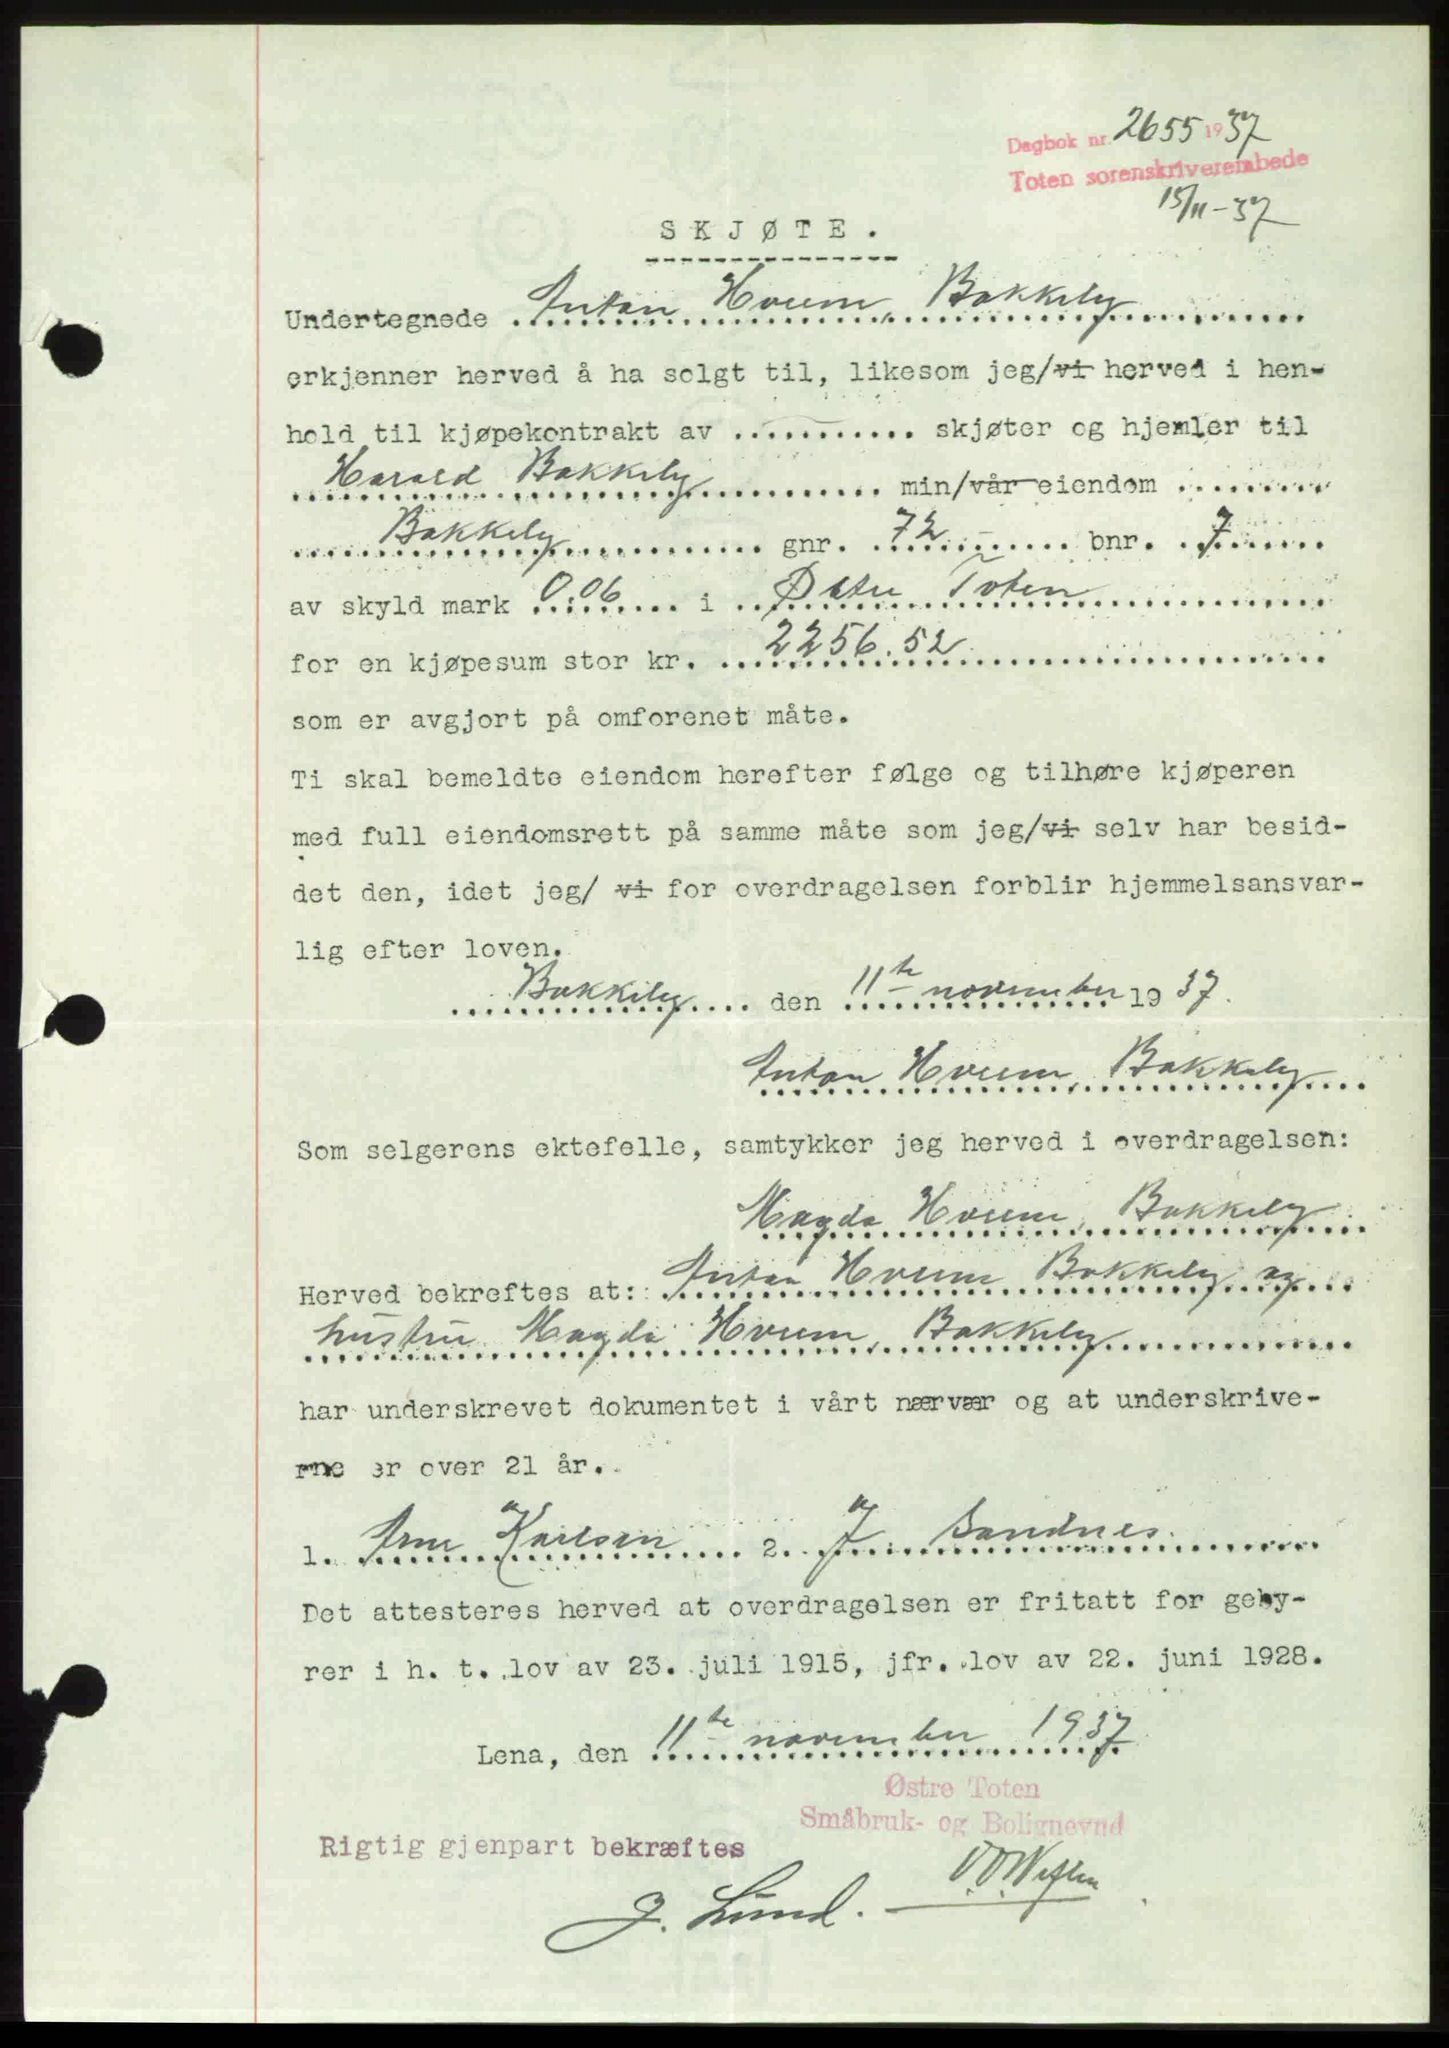 Dagbok nr. 2655 1937
Toten sorenskriverembede
15/11-37
SKJØTE.
Undertegnede Anton Hveem, Bakkely
erkjenner herved å ha solgt til, likesom jeg/vi herved i hen-
hold til kjøpekontrakt av ............ skjøter og hjemler til
Harald Bakkely min/vår eiendom ..........
Bakkely gnr. 72 bnr. 7
av skyld mark 0.06 i Østre Toten
for en kjøpesum stor kr. 2256.52
som er avgjort på omforenet måte.
Ti skal bemeldte eiendom herefter følge og tilhøre kjøperen
med full eiendomsrett på samme måte som jeg/vi selv har besid-
det den, idet jeg/ vi for overdragelsen forblir hjemmelsansvar-
lig efter loven.
Bakkely den 11te november 1937.
Anton Hveem, Bakkely
Som selgerens ektefelle, samtykker jeg herved i overdragelsen:
Magda Hveem, Bakkely
Herved bekreftes at: Anton Hveem Bakkely og
hustru Magda Hveem, Bakkely
har underskrevet dokumentet i vårt nærvær og at underskrive-
rne er over 21 år.
1. Arne Karlsen 2. J Sandnes.
Det attesteres herved at overdragelsen er fritatt for geby-
rer i h. t. lov av 23. juli 1915, jfr. lov av 22. juni 1928.
Lena, den 11te november 1937
Østre Toten
Småbruk- og Bolignevnd
Rigtig gjenpart bekræftes
J. Lund.